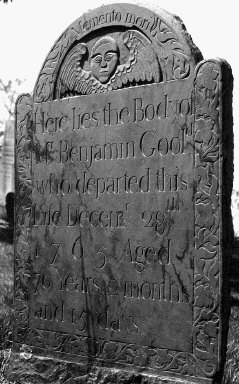 Memento mori
Here lies the Body of
Mr Benjamin Goolᵈ
who departed this
Life Decemr 29th
1765 Aged
70 Years 9 months
and 15 days